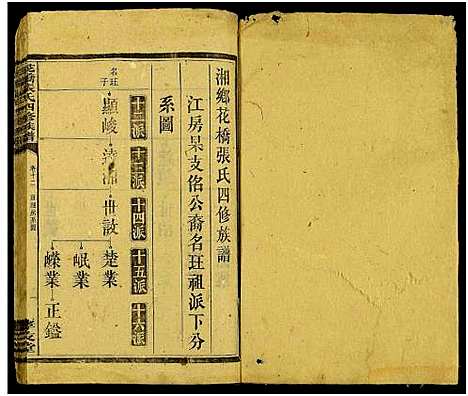 湘鄉花橋張氏四修族譜
江房杲支佲公裔名玨祖派下分
系圖
十二派
十三派
十四派
十五派
十六派
名玨子
顯峻
世誼
楚業
岷業
嶸業
正鎰
氏四修族譜